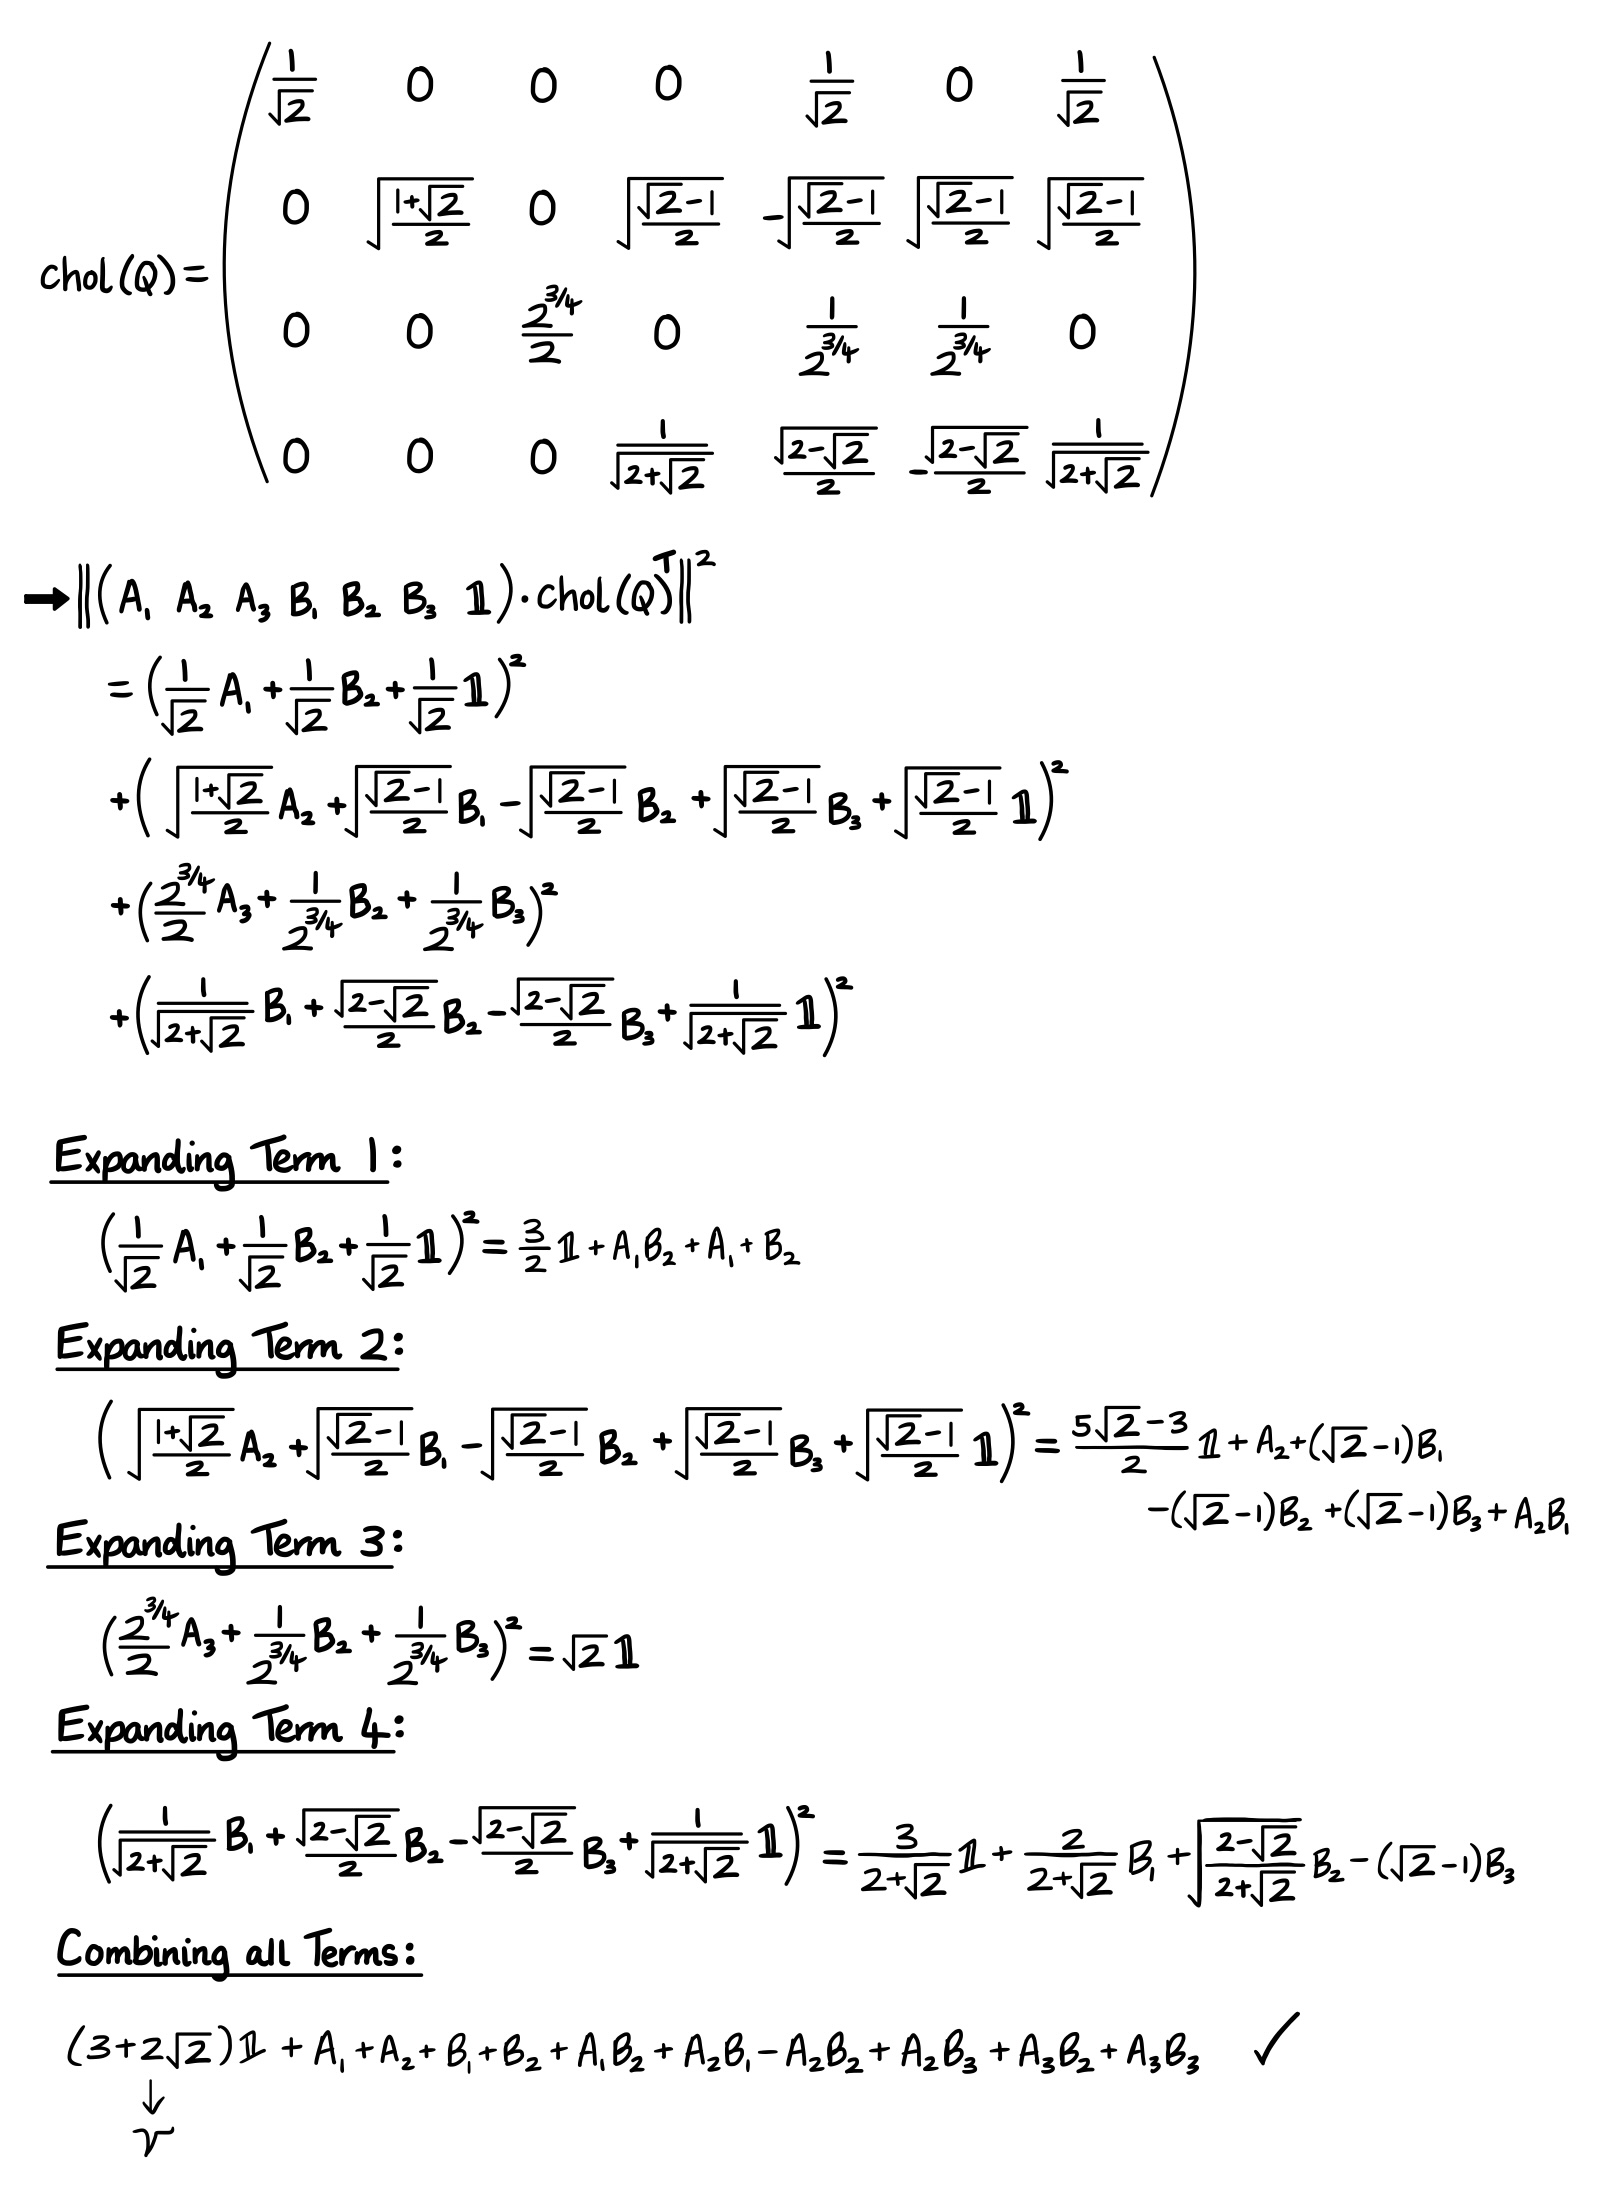 chol(Q) = \begin{pmatrix} \frac{1}{\sqrt{2}} & 0 & 0 & 0 & \frac{1}{\sqrt{2}} & 0 & \frac{1}{\sqrt{2}} \\ 0 & \sqrt{\frac{1+\sqrt{2}}{2}} & 0 & \sqrt{\frac{\sqrt{2}-1}{2}} & -\sqrt{\frac{\sqrt{2}-1}{2}} & \sqrt{\frac{\sqrt{2}-1}{2}} & \sqrt{\frac{\sqrt{2}-1}{2}} \\ 0 & 0 & \frac{2^{3/4}}{2} & 0 & \frac{1}{2^{3/4}} & \frac{1}{2^{3/4}} & 0 \\ 0 & 0 & 0 & \frac{1}{\sqrt{2+\sqrt{2}}} & \frac{\sqrt{2-\sqrt{2}}}{2} & -\frac{\sqrt{2-\sqrt{2}}}{2} & \frac{1}{\sqrt{2+\sqrt{2}}} \end{pmatrix}
➡ ‖(A₁ A₂ A₃ B₁ B₂ B₃ 𝟙) · chol(Q)^T‖²
= (\frac{1}{\sqrt{2}} A₁ + \frac{1}{\sqrt{2}} B₂ + \frac{1}{\sqrt{2}} 𝟙)²
+ (\sqrt{\frac{1+\sqrt{2}}{2}} A₂ + \sqrt{\frac{\sqrt{2}-1}{2}} B₁ - \sqrt{\frac{\sqrt{2}-1}{2}} B₂ + \sqrt{\frac{\sqrt{2}-1}{2}} B₃ + \sqrt{\frac{\sqrt{2}-1}{2}} 𝟙)²
+ (\frac{2^{3/4}}{2} A₃ + \frac{1}{2^{3/4}} B₂ + \frac{1}{2^{3/4}} B₃)²
+ (\frac{1}{\sqrt{2+\sqrt{2}}} B₁ + \frac{\sqrt{2-\sqrt{2}}}{2} B₂ - \frac{\sqrt{2-\sqrt{2}}}{2} B₃ + \frac{1}{\sqrt{2+\sqrt{2}}} 𝟙)²
Expanding Term 1:
(\frac{1}{\sqrt{2}} A₁ + \frac{1}{\sqrt{2}} B₂ + \frac{1}{\sqrt{2}} 𝟙)² = \frac{3}{2} 𝟙 + A₁B₂ + A₁ + B₂
Expanding Term 2:
(\sqrt{\frac{1+\sqrt{2}}{2}} A₂ + \sqrt{\frac{\sqrt{2}-1}{2}} B₁ - \sqrt{\frac{\sqrt{2}-1}{2}} B₂ + \sqrt{\frac{\sqrt{2}-1}{2}} B₃ + \sqrt{\frac{\sqrt{2}-1}{2}} 𝟙)² = \frac{5\sqrt{2}-3}{2} 𝟙 + A₂ + (\sqrt{2}-1)B₁
-(\sqrt{2}-1)B₂ + (\sqrt{2}-1)B₃ + A₂B₁
Expanding Term 3:
(\frac{2^{3/4}}{2} A₃ + \frac{1}{2^{3/4}} B₂ + \frac{1}{2^{3/4}} B₃)² = \sqrt{2} 𝟙
Expanding Term 4:
(\frac{1}{\sqrt{2+\sqrt{2}}} B₁ + \frac{\sqrt{2-\sqrt{2}}}{2} B₂ - \frac{\sqrt{2-\sqrt{2}}}{2} B₃ + \frac{1}{\sqrt{2+\sqrt{2}}} 𝟙)² = \frac{3}{2+\sqrt{2}} 𝟙 + \frac{2}{2+\sqrt{2}} B₁ + \sqrt{\frac{2-\sqrt{2}}{2+\sqrt{2}}} B₂ - (\sqrt{2}-1)B₃
Combining all Terms:
(3+2\sqrt{2})𝟙 + A₁ + A₂ + B₁ + B₂ + A₁B₂ + A₂B₁ - A₂B₂ + A₂B₃ + A₃B₂ + A₃B₃ ✓
↓